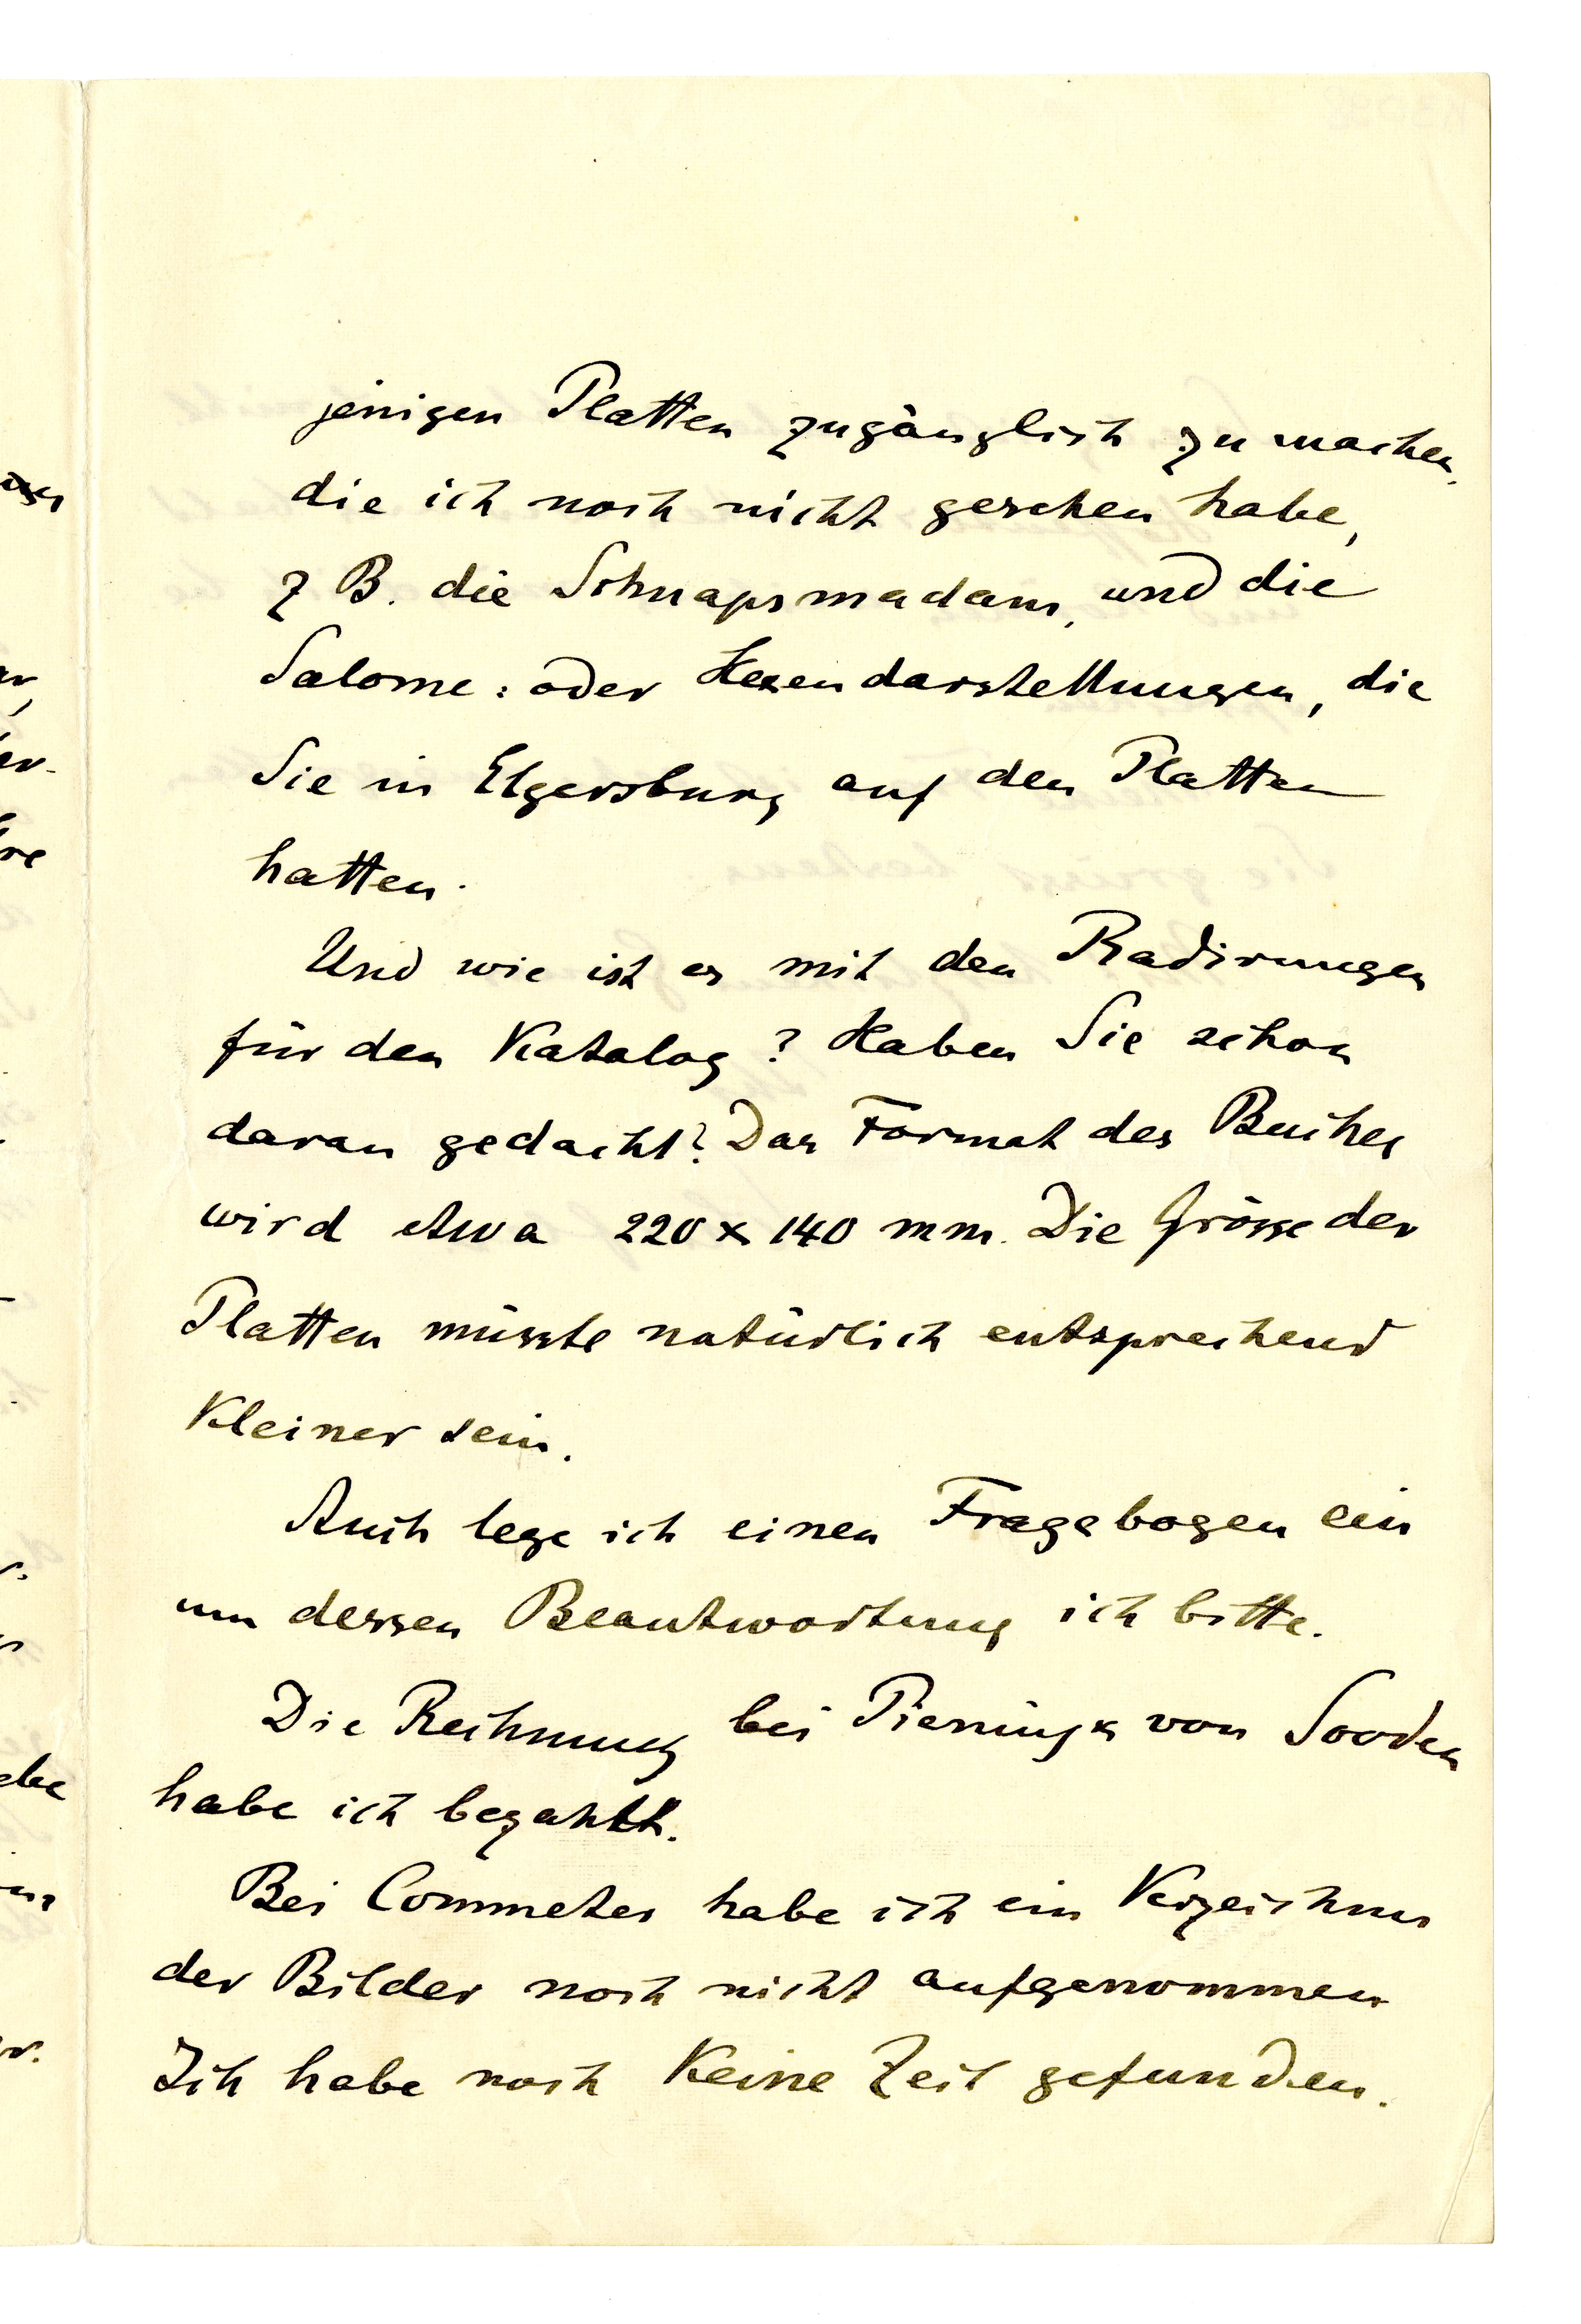 jenigen Platten zugänglich zu machen,
die ich noch nicht gesehen habe,
z B. die Schnapsmadam, und die
Salome: oder Hexendarstellungen, die
Sie in Elgersburg auf den Platten
hatten.
Und wie ist es mit den Radirungen
für den Katalog? Haben Sie schon
daran gedacht? Das Format des Buches
wird etwa 220 x 140 mm. Die Grösse der
Platten müsste natürlich entsprechend
kleiner sein.
Auch lege ich einen Fragebogen ein
um dessen Beantwortung ich bitte.
Die Rechnung bei Pienings von Sooden
habe ich bezahlt.
Bei Commeter habe ich ein Verzeichnis
der Bilder noch nicht aufgenommen
Ich habe noch keine Zeit gefunden.